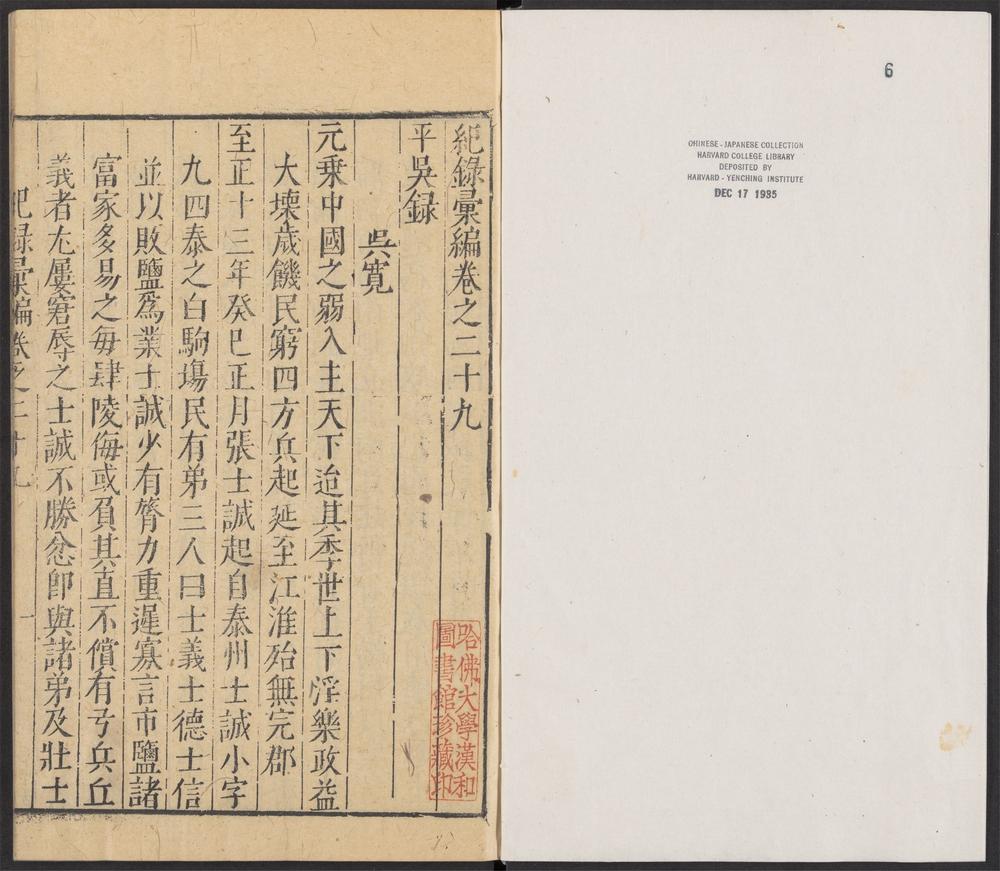 6
CHINESE - JAPANESE COLLECTION
HARVARD COLLEGE LIBRARY
DEPOSITED BY
HARVARD - YENCHING INSTITUTE
DEC 17 1935
紀錄彙編卷之二十九
平吳録
吳寬
元乗中國之弱入主天下迨其季世上下淫樂政益
大壊歲饑民窮四方兵起延至江淮殆無完郡
至正十三年癸巳正月張士誠起自泰州士誠小字
九四泰之白駒塲民有弟三人曰士義士德士信
並以敗鹽爲業士誠少有膂力重遲寡言市鹽諸
富家多易之毎肆陵侮或負其直不償有弓兵丘
義者尢屢窘辱之士誠不勝忿卽與諸弟及壯士
紀録彙編卷之二十九
一
哈佛大學漢和
圖書館珍藏印